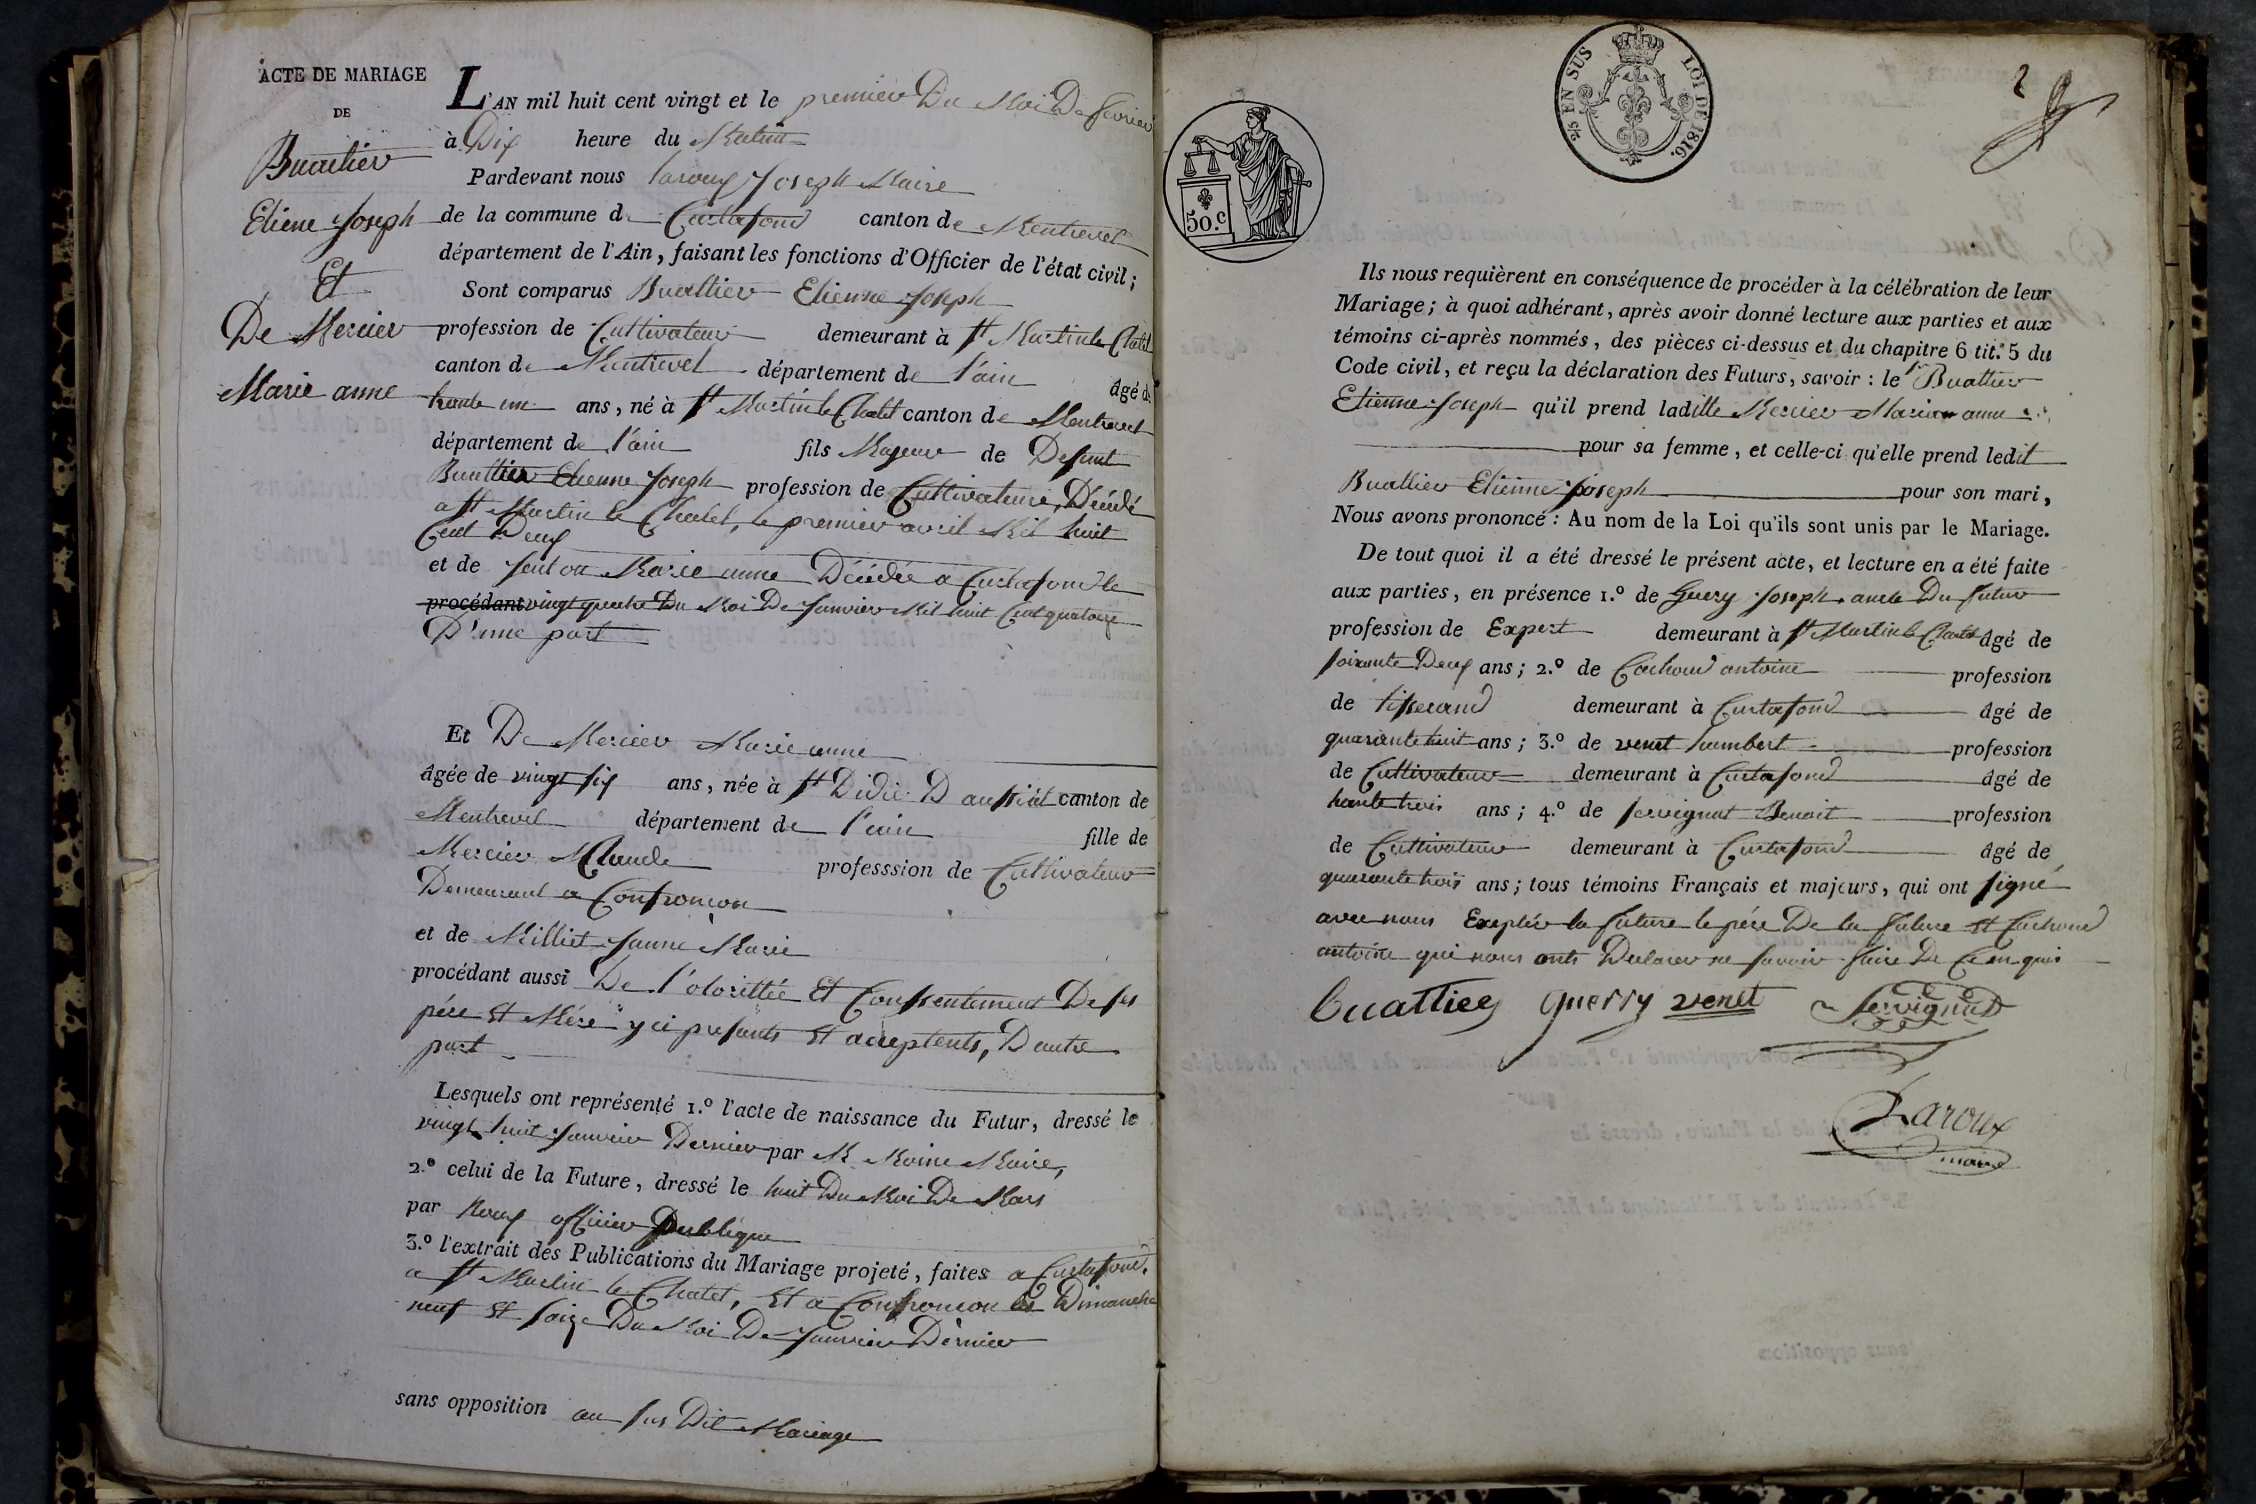 ACTE DE MARIAGE
DE
Buattier
Etiene Joseph
Et
De Mercier
Marie anne
L'AN mil huit cent vingt et le premier Du Moi De fevrier
à Dix heure du Matin
Pardevant nous laroux Joseph Maire
de la commune de Curtafond canton de Montrevel
département de l'Ain, faisant les fonctions d'Officier de l'état civil;
Sont comparus Buattier Etienne Joseph
profession de Cultivateur demeurant à St Martin le Chatel
canton de Montrevel département de l'ain âgé de
trente un ans, né à St Martin le Chatel canton de Montrevel
département de l'ain fils Majeur de Defunt
Buattier Etienne Joseph profession de Cultivateur, Décédé
a St Martin le Chatel, le premier avril Mil huit
Cent Deux
et de Marie anne Décédée a Curtafond le
procédant vingt quatre Du Moi De Janvier Mil huit Cent quatorze
D'une part
Et De Mercier Marie anne
âgée de vingt six ans, née à St Didié D'aussiat canton de
Montrevel département de l'ain fille de
Mercier Claude professsion de Cultivateur
Demeurant a Confrancon
et de Milliet Janne Marie
procédant aussi De l'otorittée Et Consentement De ses
pére Et Mére y ci presants Et acceptents, D'autre
part
Lesquels ont représenté 1.º l'acte de naissance du Futur, dressé le
vingt huit Janvier Dernier par M. Moine Maire,
2.º celui de la Future, dressé le huit Du Moi De Mars
par officier Publique
3.º l'extrait des Publications du Mariage projeté, faites a Curtafond,
a St Martin le Chatel, Et a Confrancon les Dimanche
neuf Et saize Du Moi De Janvier Dernier
sans opposition au sus Dit Mariage
2/5 EN SUS LOI DE 1816.
50.c
2
Ils nous requièrent en conséquence de procéder à la célébration de leur
Mariage; à quoi adhérant, après avoir donné lecture aux parties et aux
témoins ci-après nommés, des pièces ci-dessus et du chapitre 6 tit. 5 du
Code civil, et reçu la déclaration des Futurs, savoir : le Sr Buattier
Etienne Joseph qu'il prend ladille Mercier Marie anne
pour sa femme, et celle-ci qu'elle prend ledit
Buattier Etienne Joseph pour son mari,
Nous avons prononcé : Au nom de la Loi qu'ils sont unis par le Mariage.
De tout quoi il a été dressé le présent acte, et lecture en a été faite
aux parties, en présence 1.º de Guery Joseph oncle Du futur
profession de Expert demeurant à St Martin le Chatel âgé de
soixante Deux ans; 2.º de Cochoud antoine profession
de tisserand demeurant à Curtafond âgé de
quarante huit ans; 3.º de venet humbert profession
de Cultivateur demeurant à Curtafond âgé de
trante trois ans; 4.º de servignat Benoit profession
de Cultivateur demeurant à Curtafond âgé de
quarante trois ans; tous témoins Français et majeurs, qui ont signé
avec nous Exeptée la future le pére De la future Et Cochoud
antoine qui nous onts Declarer ne savoir faire De Ce en quis
buattier querry venet Servignat
Laroux
maire